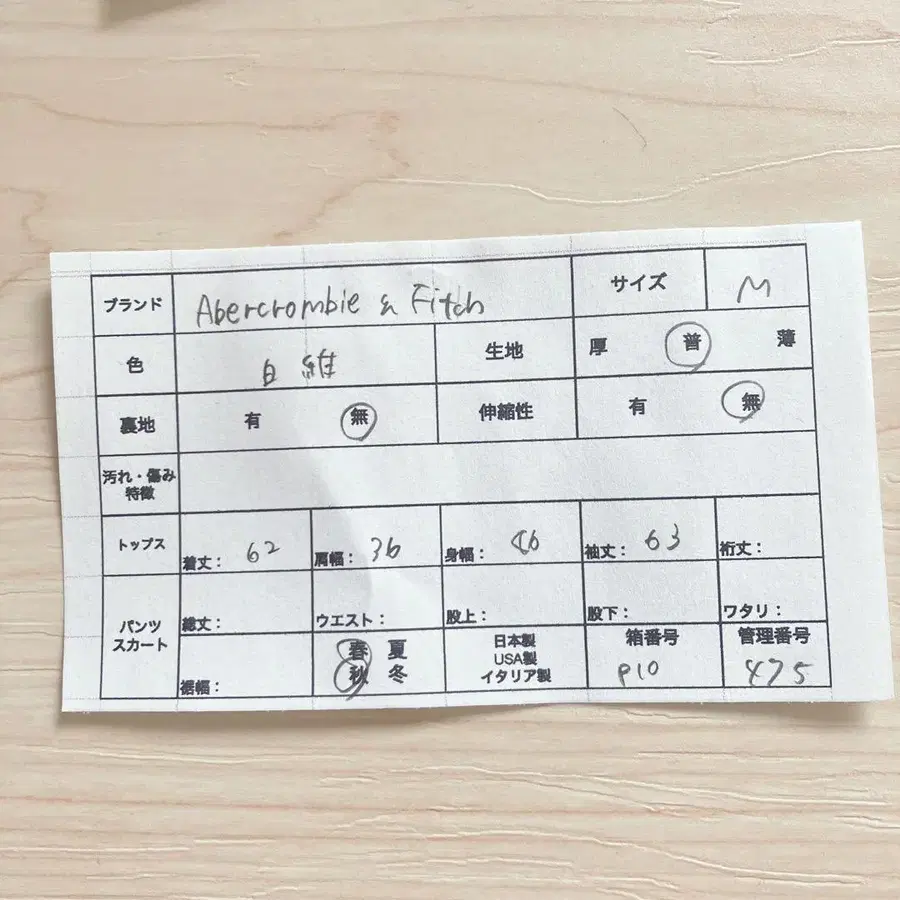 ブランド Abercrombie & Fitch サイズ M
色 白 維 生地 厚 普 薄
裏地 有 無 伸縮性 有 無
汚れ・傷み
特徴
トップス 着丈: 62 肩幅: 36 身幅: 46 袖丈: 63 裄丈:
パンツ
スカート
総丈: ウエスト: 股上: 股下: ワタリ:
裾幅: 春 夏
秋 冬
日本製
USA製
イタリア製
箱番号
P10
管理番号
475